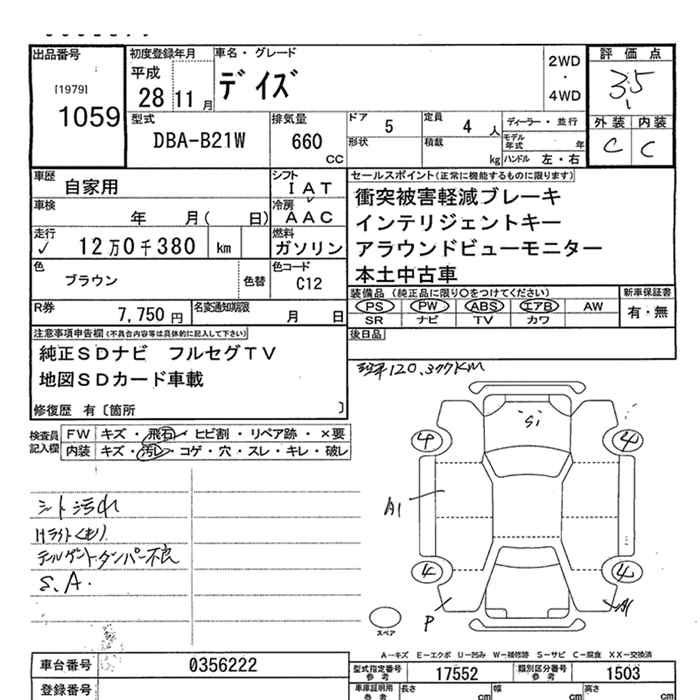 出品番号 初度登録年月 車名・グレード 2WD・4WD 評価点
[1979] 1059
平成 28 11月
デイズ
3.5
型式 DBA-B21W
排気量 660 CC
ドア 5 定員 4 人 ディーラー・並行
形状 積載 kg モデル年式 年
ハンドル 左・右
外装 内装
C C
車歴 自家用
シフト IAT
車検 年 月( 日)
冷房 AAC
走行 ✓ 12万0千380 km
燃料 ガソリン
色 ブラウン 色替
色コード C12
R券 7,750円 名変通知期限 月 日
セールスポイント(正常に機能するものに限ります)
衝突被害軽減ブレーキ
インテリジェントキー
アラウンドビューモニター
本土中古車
装備品(純正品に限り○をつけてください) 新車保証書
PS PW ABS エアB AW 有・無
SR ナビ TV カワ
後日品
注意事項申告欄(不具合内容等は具体的に記入して下さい)
純正SDナビ フルセグTV
地図SDカード車載
修復歴 有〔箇所 〕
120,377KM
検査員記入欄
FW キズ・飛石・ヒビ割・リペア跡・×要
内装 キズ・汚レ・コゲ・穴・スレ・キレ・破レ
シート汚れ
Hライトくもり
テールゲートダンパー不良
S.A.
Si
4 4
A1
4 4
P A1
スペア
A-キズ E-エクボ U-凹み W-補修跡 S-サビ C-腐食 XX-交換済
車台番号 0356222
登録番号
型式指定番号参考 17552 類別区分番号参考 1503
車庫証明用参考 長さ cm 幅 cm 高さ cm